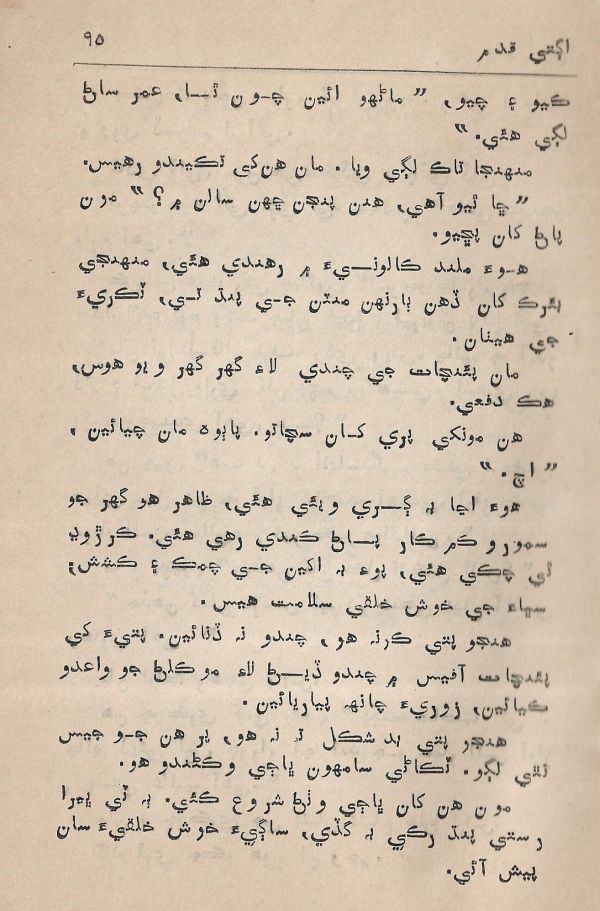 اڳتي قدم ۹۵
ڪيو ۽ چيو، ”ماڻهو ائين چون ٿا، عمر ساڻ
لڳي هئي.“
منهنجا تاڪ لڳي ويا. مان هن کي تڪيندو رهيس.
”ڇا ٿيو آهي، هنن پنجن ڇهن سالن ۾؟“ مون
پاڻ کان پڇيو.
هوءَ ملند ڪالونيءَ ۾ رهندي هئي، منهنجي
بئرڪ کان ڏهن ٻارنهن منٽن جي پنڌ تي، ٽڪريءَ
جي هيٺان.
مان پئنچات جي چندي لاءِ گهر گهر ويو هوس،
هڪ دفعي.
هن مونکي پري کان سڃاتو. پاٻوه مان چيائين،
”اچ.“
هوءَ اڃا به ڳري ويئي هئي، ظاهر هو گهر جو
سمورو ڪم ڪار پاڻ ڪندي رهي هئي. ڪرڙوڍ
ٿي چڪي هئي، پوءِ به اکين جي چمڪ ۽ ڪشش،
سڀاءَ جي خوش خلقي سلامت هيس.
هنجو پتي ڪرنہ هو، چندو نہ ڏنائين. پتيءَ کي
پئنچات آفيس ۾ چندو ڏيڻ لاءِ موڪلڻ جو واعدو
ڪيائين، زوريءَ چانهه پياريائين.
هنجو پتي بد شڪل تہ نہ هو، پر هن جوڙيس
نٿي لڳو. ٽڪاڻي سامهون ڀاڄي وڪڻندو هو.
مون هن کان ڀاڄي وٺڻ شروع ڪئي. ٻه ٽي ڀيرا
رستي پنڌ رکي به گڏي، ساڳيءَ خوش خلقيءَ سان
پيش آئي.